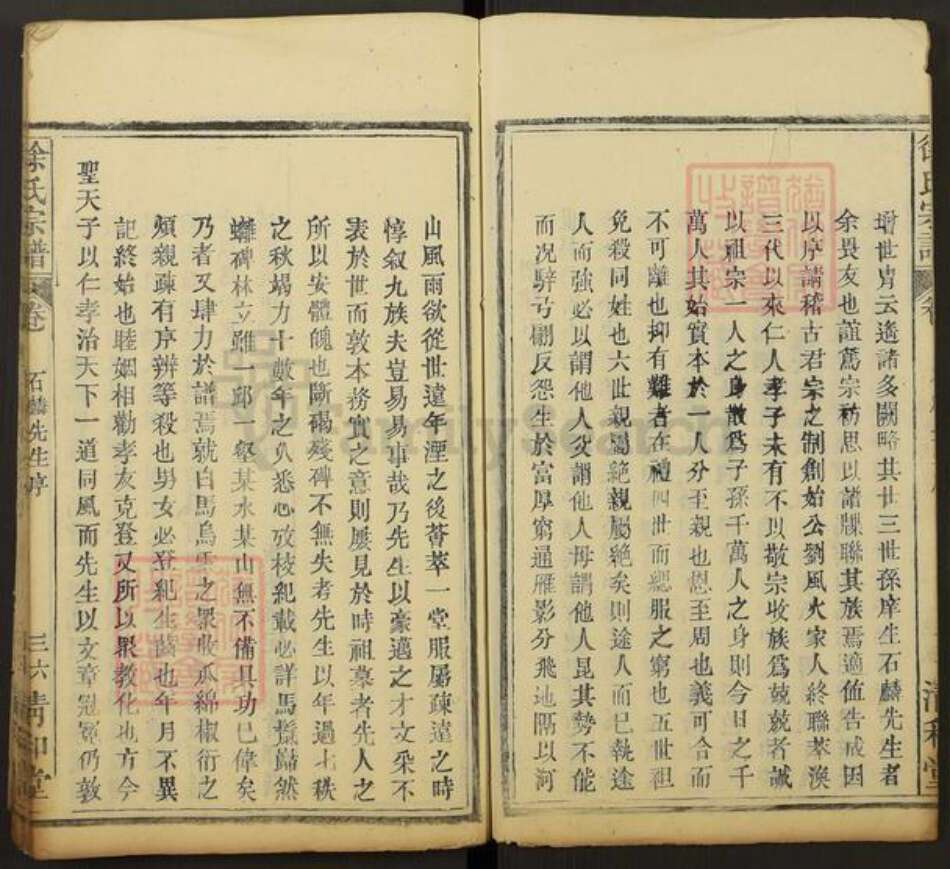 增世胄云遙諸多闕略其廿三世孫庠生石麟先生者
余畏友也誼篤宗祊思以諸牒聯其族焉適值告成因
以序請稽古君宗之制創始公劉風火家人終聯萃渙
三代以來仁人孝子未有不以敬宗收族為兢兢者誠
以祖宗一人之身散為子孫千萬人之身則今日之千
萬人其始實本於一人分至親也恩至周也義可合而
不可離也抑有難者在禮四世而緦服之窮也五世袒
免殺同姓也六世親屬絶親屬絶矣則途人而已執途
人而強必以謂他人父謂他人母謂他人昆其勢不能
而况騂弓翩反怨生於富厚窮通雁影分飛地隔以河
山風雨欲從世遠年湮之後薈萃一堂服屬疎遠之時
惇叙九族夫豈易易事哉乃先生以豪邁之才文采不
表於世而敦本務實之意則屢見於時祖墓者先人之
所以安體魄也斷碣殘碑不無失者先生以年過七秩
之秋竭力十數年之久悉心攷核紀載必詳馬鬛巋然
碑林立雖一邱一壑某水某山無不備具功已偉矣
乃者又肆力於譜焉就白馬烏 之眾收瓜綿椒衍之
頻親疎有序辨等殺也男女必登紀生齒也年月不異
記終始也睦姻相勸孝友克登又所以眾教化也方今
聖天子以仁孝治天下一道同風而先生以文章冠冕仍敦
徐氏宗譜
卷
石麟先生序
三六
清和堂